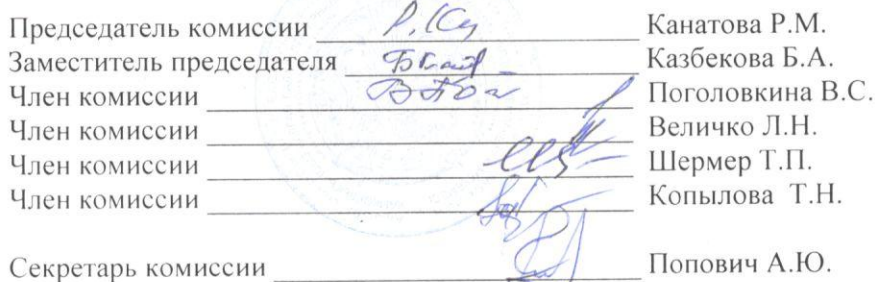 Председатель комиссии Канатова Р.М.
Заместитель председателя Казбекова Б.А.
Член комиссии Поголовкина В.С.
Член комиссии Величко Л.Н.
Член комиссии Шермер Т.П.
Член комиссии Копылова Т.Н.
Секретарь комиссии Попович А.Ю.